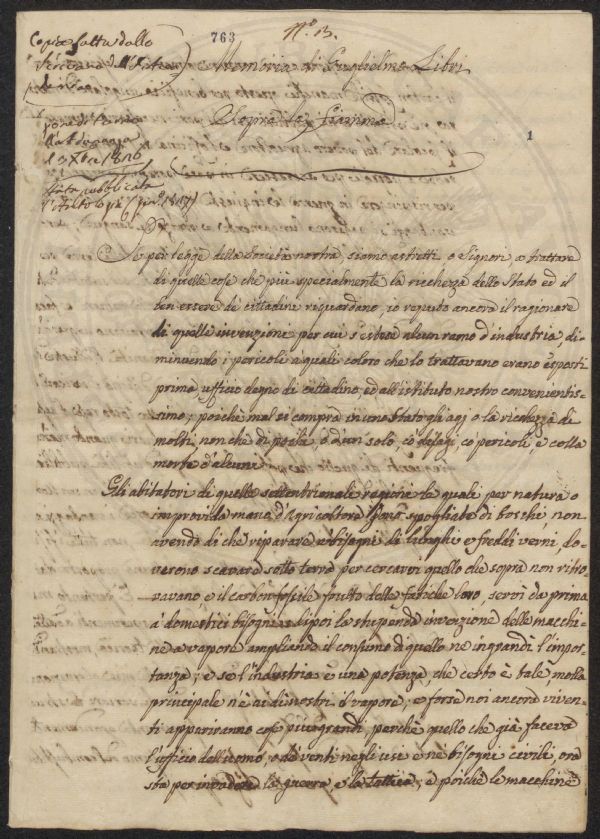 763
N.° 13.
Copia fatta dallo
Memoria di Guglielmo Libri
Sopra le Fiamme
1
1826
pubblicata
Se per legge della Società nostra, siamo astretti o Signori a trattare
di quelle cose che più specialmente la richezza dello Stato ed il
ben essere de cittadini riguardano, io reputo ancora il ragionare
di quelle invenzioni per cui s'estese alcun ramo d'industria di-
minuendo i pericoli a quali coloro che lo trattavano erano esposti
prima, ufficio degno di cittadino, ed all'istituto nostro convenientis-
simo; poichè mal si compra in uno Stato gli agj o la richezza di
molti, non che di pochi, o d'un solo, co' disagi, co pericoli e colla
morte d'alcuni.
Gli abitatori di quelle settentrionali regioni le quali per natura o
improvvida mano d'Agricoltore sono spogliate di boschi, non
avendo di che riparare a bisogni di lunghi e freddi verni, do-
verono scavare sotto terra per cercarvi quello che sopra non ritro-
vavano, e il carbon fossile frutto delle fatiche loro, servì da prima
a' domestici bisogni: dipoi la stupenda invenzione delle macchi-
ne a vapore ampliando il consumo di quello ne ingrandì l'impor-
tanza; e se l'industria è una potenza, che certo è tale, molla
principale n'è ai dì nostri il vapore, e forse noi ancora viven-
ti appariranno cose più grandi, perchè quello che già faceva
l'ufficio dell'uomo, o de' venti negli usi e ne' bisogni civili, ora
sta per invadere la guerra, e la tattica; e poichè le macchine